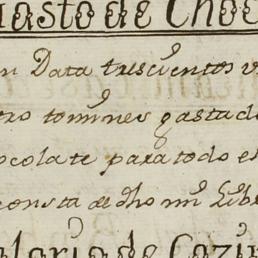 Gasto de Choc
n Data trescientos v
tro tomines gastado
ocolate para todo e
consta de dho mi Libr
alario de Cozin